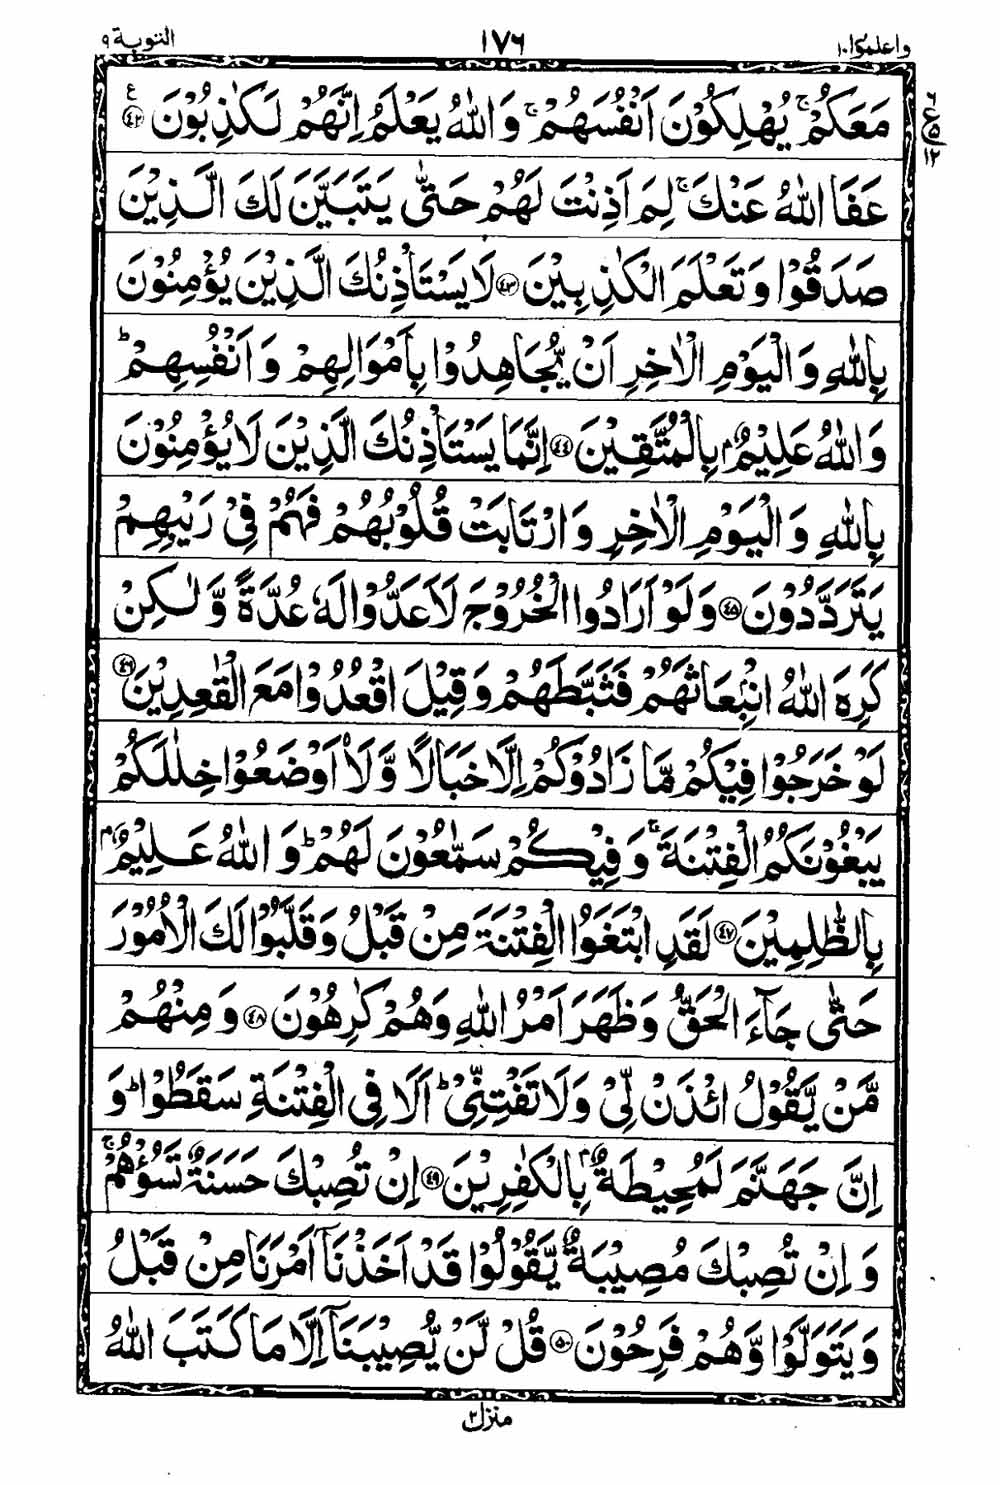 واعلموا ١٠ ١٧٦ التوبة ٩
مَعَكُمْ ۚ يُهْلِكُوْنَ اَنْفُسَهُمْ ۚ وَاللّٰهُ يَعْلَمُ اِنَّهُمْ لَكٰذِبُوْنَ ﴿٤٢﴾ ع
٦ ع ٥ ١٢
عَفَا اللّٰهُ عَنْكَ ۚ لِمَ اَذِنْتَ لَهُمْ حَتّٰى يَتَبَيَّنَ لَكَ الَّذِيْنَ
صَدَقُوْا وَتَعْلَمَ الْكٰذِبِيْنَ ﴿٤٣﴾ لَا يَسْتَاْذِنُكَ الَّذِيْنَ يُؤْمِنُوْنَ
بِاللّٰهِ وَالْيَوْمِ الْاٰخِرِ اَنْ يُّجَاهِدُوْا بِاَمْوَالِهِمْ وَاَنْفُسِهِمْ ؕ
وَاللّٰهُ عَلِيْمٌۢ بِالْمُتَّقِيْنَ ﴿٤٤﴾ اِنَّمَا يَسْتَاْذِنُكَ الَّذِيْنَ لَا يُؤْمِنُوْنَ
بِاللّٰهِ وَالْيَوْمِ الْاٰخِرِ وَارْتَابَتْ قُلُوْبُهُمْ فَهُمْ فِيْ رَيْبِهِمْ
يَتَرَدَّدُوْنَ ﴿٤٥﴾ وَلَوْ اَرَادُوا الْخُرُوْجَ لَاَعَدُّوْا لَهٗ عُدَّةً وَّلٰكِنْ
كَرِهَ اللّٰهُ انْۢبِعَاثَهُمْ فَثَبَّطَهُمْ وَقِيْلَ اقْعُدُوْا مَعَ الْقٰعِدِيْنَ ﴿٤٦﴾
لَوْ خَرَجُوْا فِيْكُمْ مَّا زَادُوْكُمْ اِلَّا خَبَالًا وَّلَا۟اَوْضَعُوْا خِلٰلَكُمْ
يَبْغُوْنَكُمُ الْفِتْنَةَ ۚ وَفِيْكُمْ سَمّٰعُوْنَ لَهُمْ ؕ وَاللّٰهُ عَلِيْمٌۢ
بِالظّٰلِمِيْنَ ﴿٤٧﴾ لَقَدِ ابْتَغَوُا الْفِتْنَةَ مِنْ قَبْلُ وَقَلَّبُوْا لَكَ الْاُمُوْرَ
حَتّٰى جَآءَ الْحَقُّ وَظَهَرَ اَمْرُ اللّٰهِ وَهُمْ كٰرِهُوْنَ ﴿٤٨﴾ وَمِنْهُمْ
مَّنْ يَّقُوْلُ ائْذَنْ لِّيْ وَلَا تَفْتِنِّيْ ؕ اَلَا فِي الْفِتْنَةِ سَقَطُوْا ؕ وَ
اِنَّ جَهَنَّمَ لَمُحِيْطَةٌۢ بِالْكٰفِرِيْنَ ﴿٤٩﴾ اِنْ تُصِبْكَ حَسَنَةٌ تَسُؤْهُمْ ۚ
وَاِنْ تُصِبْكَ مُصِيْبَةٌ يَّقُوْلُوْا قَدْ اَخَذْنَآ اَمْرَنَا مِنْ قَبْلُ
وَيَتَوَلَّوْا وَّهُمْ فَرِحُوْنَ ﴿٥٠﴾ قُلْ لَّنْ يُّصِيْبَنَآ اِلَّا مَا كَتَبَ اللّٰهُ
منزل ٢